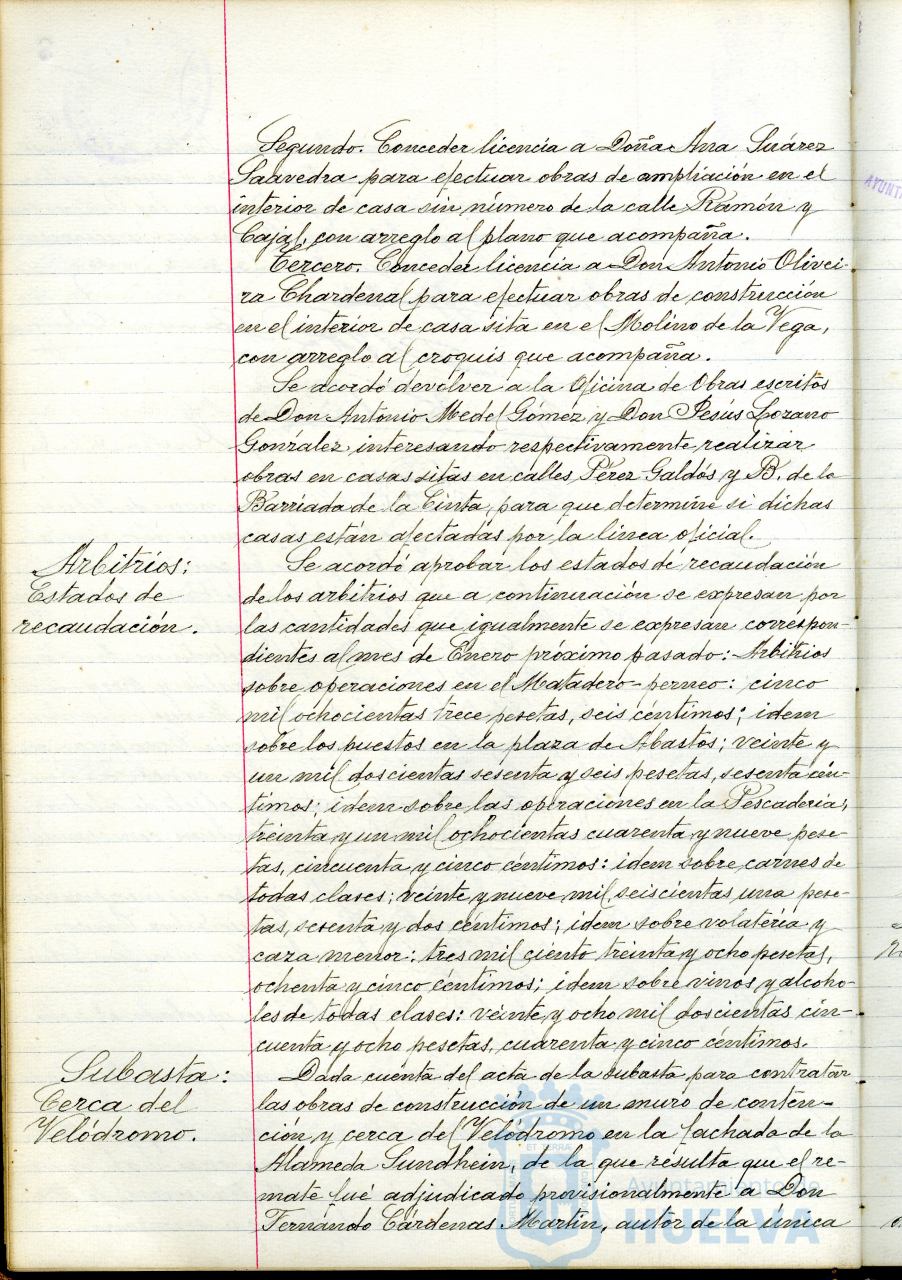 Segundo. Conceder licencia a Doña Ana Suárez
Saavedra para efectuar obras de ampliación en el
interior de casa sin número de la calle Ramón y
Cajal, con arreglo al plano que acompaña.
Tercero. Conceder licencia a Don Antonio Olivei-
ra Chardenal para efectuar obras de construcción
en el interior de casa sita en el Molino de la Vega,
con arreglo al croquis que acompaña.
Se acordó devolver a la Oficina de Obras escritos
de Don Antonio Medel Gómez y Don Jesús Lozano
González interesando respectivamente realizar
obras en casas sitas en calles Pérez Galdós y B. de la
Barriada de la Cinta, para que determine si dichas
casas están afectadas por la linea oficial.
Arbitrios:
Estados de
recaudación.
Se acordó aprobar los estados de recaudación
de los arbitrios que a continuación se expresan por
las cantidades que igualmente se expresan correspon-
dientes al mes de Enero próximo pasado: Arbitrios
sobre operaciones en el Matadero-perneo: cinco
mil ochocientas trece pesetas, seis céntimos; idem
sobre los puestos en la plaza de Abastos; veinte y
un mil doscientas sesenta y seis pesetas, sesenta cén-
timos; idem sobre las operaciones en la Pescaderia,
treinta y un mil ochocientas cuarenta y nueve pese-
tas, cincuenta y cinco céntimos: idem sobre carnes de
todas clases; veinte y nueve mil, seiscientas una pese-
tas, sesenta y dos céntimos; idem sobre volateria y
caza menor: tres mil ciento treinta y ocho pesetas,
ochenta y cinco céntimos; idem sobre vinos y alcoho-
les de todas clases: veinte y ocho mil doscientas cin-
cuenta y ocho pesetas, cuarenta y cinco céntimos.
Subasta:
Cerca del
Velódromo.
Dada cuenta del acta de la subasta para contratar
las obras de construcción de un muro de conten-
ción y cerca del Velódromo en la fachada de la
Alameda Sundhein, de la que resulta que el re-
mate fué adjudicado provisionalmente a Don
Fernándo Cárdenas Martin, autor de la única
Ayuntamiento de
HUELVA